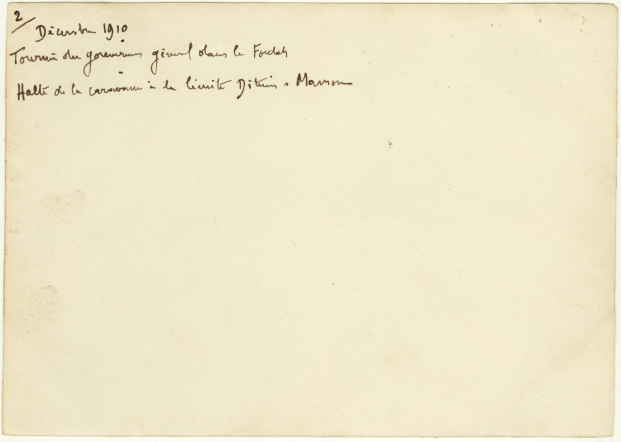 2/
Décembre 1910
Tournée du gouverneur général dans le Foutah
Halte de la caravane à la limite Ditinn - Mamou